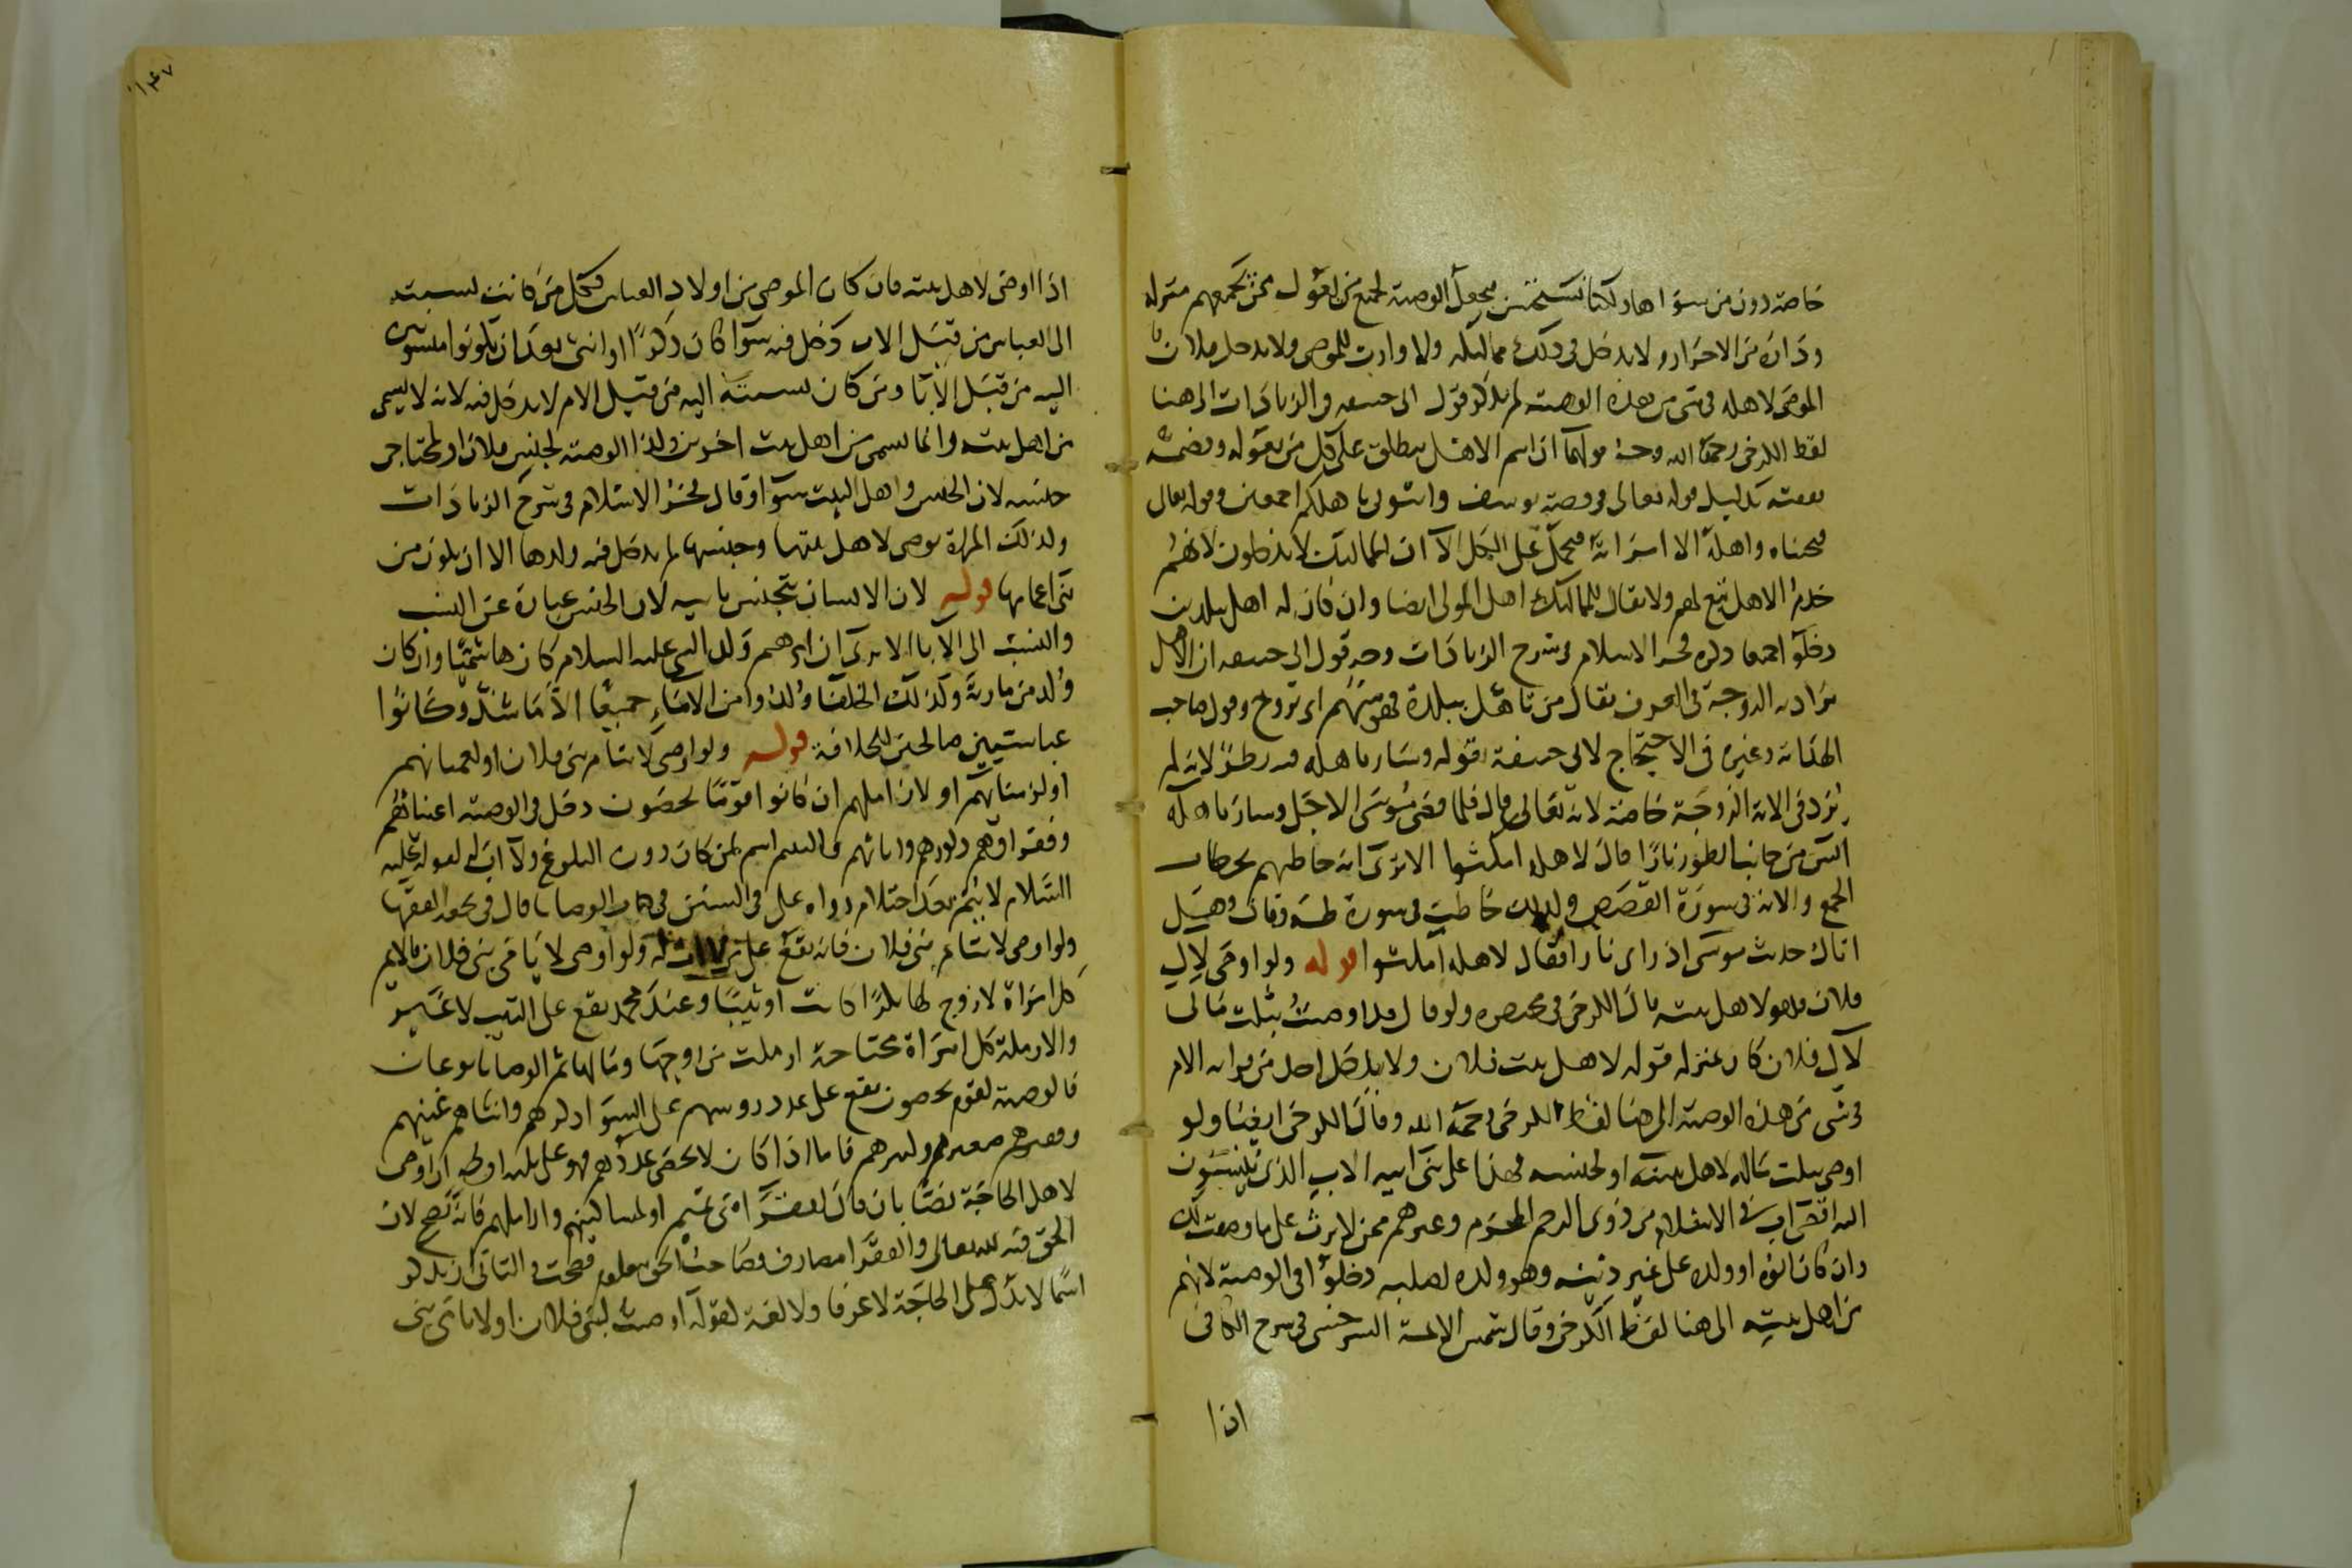 خاصة دون من سواها ولكنا نستحسن فيجعل الوصية لجميع من يعول ممن يجمعهم منزله
وداره من الاحرار ولا يدخل في ذلك مماليكه ولا وارث للموصي ولا يدخل فلان
الموصى لاهله في شي من هذه الوصية لم يذكر قول ابي حنيفة في الزيادات الى هنا
لفظ الكرخي رحمه الله وجه قولهما ان اسم الاهل يطلق على كل من يعوله وتضمه
نفقته بدليل قوله تعالى في قصة يوسف وأتوني باهلكم اجمعين وقوله تعالى
فنجيناه واهله الا امراته فيحمل على الكل الا ان المماليك لا يدخلون لانهم
خدم الاهل تبع لهم ولا يقال للمماليك اهل المولى ايضا وان كان له اهل ببلدين
دخلوا جميعا ذكره فخر الاسلام في شرح الزيادات وجه قول ابي حنيفة ان الاهل
يراد به الزوجة في العرف يقال من تاهل ببلدة فهو منهم اي تزوج وقول صاحب
الهداية وغيره في الاحتجاج لابي حنيفة بقوله وسار باهله فيه نظر لانه لم
يرد في الاية الزوجة خاصة لانه تعالى قال فلما قضى موسى الاجل وسار باهله
انس من جانب الطور نارا قال لاهله امكثوا الا ترى انه خاطبهم بخطاب
الجمع والاية في سورة القصص وكذلك خاطب في سورة طه وقال وهل
اتاك حديث موسى اذ راى نارا فقال لاهله امكثوا قوله ولو اوصى لآل
فلان فهو لاهل بيته قال الكرخي في مختصره ولو قال قد اوصيت بثلث مالي
لآل فلان كان بمنزلة قوله لاهل بيت فلان ولا يدخل احد من قرابة الام
في شي من هذه الوصية الى هنا لفظ الكرخي رحمه الله وقال الكرخي ايضا ولو
اوصى بثلث ماله لاهل بيته او لجنسه فهذا على بني ابيه الاب الذي ينسبون
اليه اقصى اب في الاسلام من ذوي الرحم المحرم وغيرهم ممن لا يرث على ما وصفت لك
وان كان ابوه او ولده على غير دينه وهو ولده لصلبه دخلوا في الوصية لانهم
من اهل بيته الى هنا لفظ الكرخي وقال شمس الايمة السرخسي في شرح الكافي
اذا
١٤٧
اذا اوصى لاهل بيته فان كان الموصي من اولاد العباس فكل من كانت نسبته
الى العباس من قبل الاب دخل فيه سوا كان ذكرا او انثى بعد ان يكونوا منسوبين
اليه من قبل الابا ومن كان نسبته اليه من قبل الام لا يدخل فيه لانه لا يسمى
من اهل بيته وانما يسمى من اهل بيت اخرين وكذا الوصية لجنس فلان او لمحتاجي
جنسه لان الجنس واهل البيت سوا وقال فخر الاسلام في شرح الزيادات
وكذلك المراة توصي لاهل بيتها وجنسها لم يدخل فيه ولدها الا ان يكون من
بني اعمامها قوله لان الانسان يتجنس بابيه لان الجنس عبارة عن النسب
والنسب الى الابا الا يرى ان ابراهيم ولد النبي عليه السلام كان هاشميا وان كان
ولد من مارية وكذلك الخلفا ولدوا من الاماء جميعا الا ما شذ وكانوا
عباسيين صالحين للخلافة قوله ولو اوصى لايتام بني فلان او لعميانهم
او لزمناهم او لاراملهم ان كانوا قوما يحصون دخل في الوصية اغنياؤهم
وفقراؤهم ذكورهم واناثهم واليتيم اسم لمن كان دون البلوغ ولا اب له لقوله عليه
السلام لا يتم بعد احتلام رواه علي في السنن في كتاب الوصايا قال في تحفة الفقها
ولو اوصى لايتام بني فلان فانه يقع على من لا اب له ولو اوصى لايامى بني فلان فالايم
كل امراة لا زوج لها بكرا كانت او ثيبا وعند محمد يقع على الثيب لا غير
والارملة كل امراة محتاجة ارملت من زوجها ومالها ثم الوصايا نوعان
فالوصية لقوم يحصون تقع على عدد روسهم على السوا ذكرهم وانثاهم غنيهم
وفقيرهم صغيرهم وكبيرهم فاما اذا كان لا يحصى عددهم فهو على ثلثة اوجه ان اوصى
لاهل الحاجة نصا بان قال لفقرا بني تميم او لمساكينهم واراملهم فانه تصح لان
الحق فيه لله تعالى والفقرا مصارف وصاحب الحق معلوم فصحت والثاني ان يذكر
اسما لا يدل على الحاجة لا عرفا ولا لغة لقوله اوصيت لبني فلان او لايامى بني